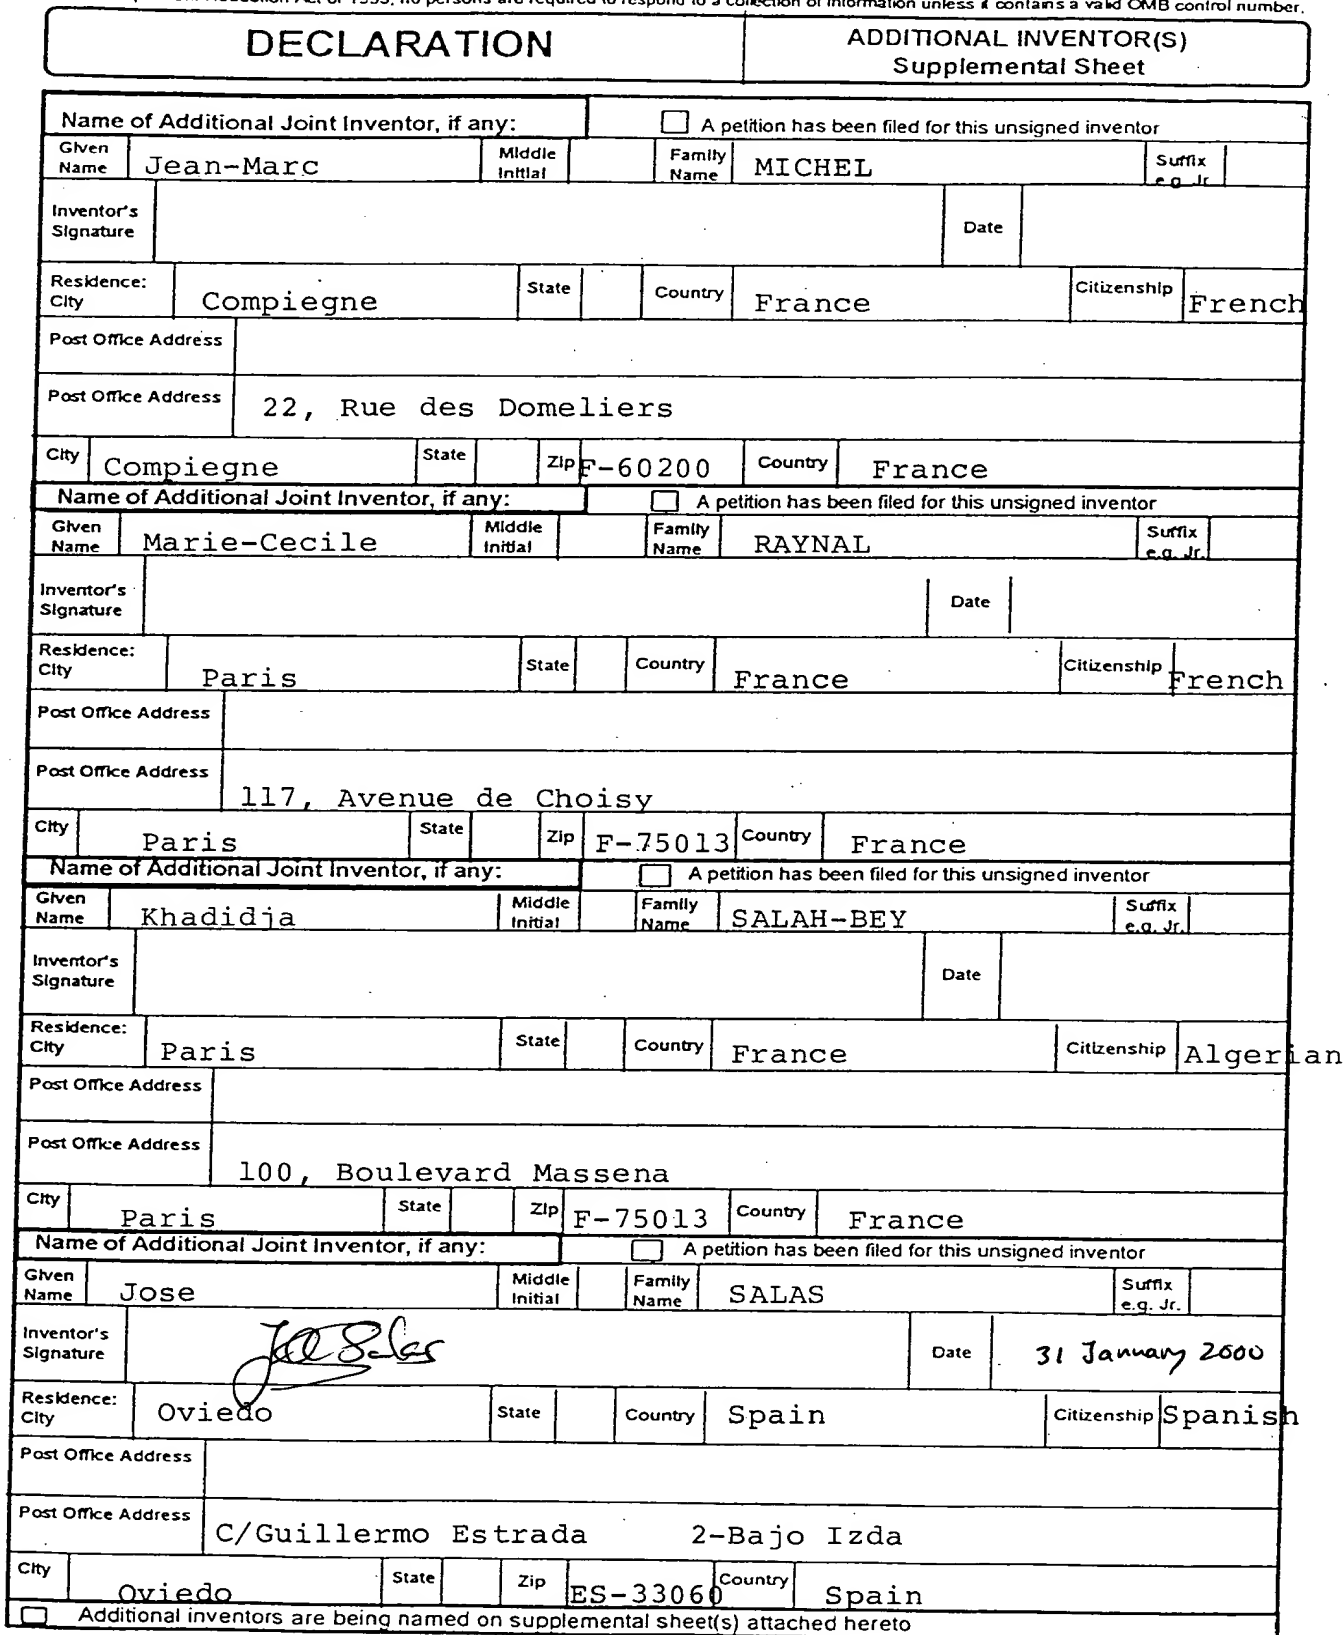 Reduction Act of 1995, no persons are required to respond to a collection of information unless it contains a valid OMB control number.
DECLARATION
ADDITIONAL INVENTOR(S)
Supplemental Sheet
Name of Additional Joint Inventor, if any:
A petition has been filed for this unsigned inventor
Given Name Jean-Marc Middle Initial Family Name MICHEL Suffix e.g. Jr.
Inventor's Signature Date
Residence: City Compiegne State Country France Citizenship French
Post Office Address
Post Office Address 22, Rue des Domeliers
City Compiegne State Zip F-60200 Country France
Name of Additional Joint Inventor, if any:
A petition has been filed for this unsigned inventor
Given Name Marie-Cecile Middle Initial Family Name RAYNAL Suffix e.g. Jr.
Inventor's Signature Date
Residence: City Paris State Country France Citizenship French
Post Office Address
Post Office Address 117, Avenue de Choisy
City Paris State Zip F-75013 Country France
Name of Additional Joint Inventor, if any:
A petition has been filed for this unsigned inventor
Given Name Khadidja Middle Initial Family Name SALAH-BEY Suffix e.g. Jr.
Inventor's Signature Date
Residence: City Paris State Country France Citizenship Algerian
Post Office Address
Post Office Address 100, Boulevard Massena
City Paris State Zip F-75013 Country France
Name of Additional Joint Inventor, if any:
A petition has been filed for this unsigned inventor
Given Name Jose Middle Initial Family Name SALAS Suffix e.g. Jr.
Inventor's Signature Date 31 January 2000
Residence: City Oviedo State Country Spain Citizenship Spanish
Post Office Address
Post Office Address C/Guillermo Estrada 2-Bajo Izda
City Oviedo State Zip ES-33060 Country Spain
Additional inventors are being named on supplemental sheet(s) attached hereto